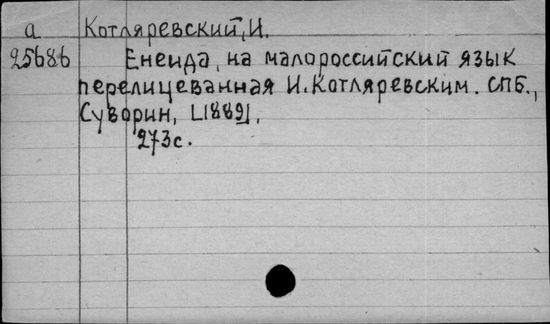 а Котляревский, И.
25686 Енеида, на малороссийский язык
перелицеванная И. Котляревским. СПБ.,
Суворин, [1889],
273с.